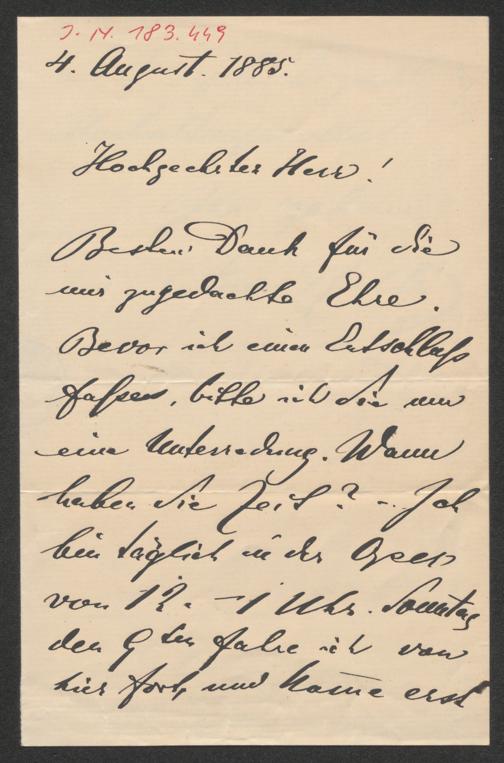 J. N. 183.449
4. August. 1885.
Hochgeehrter Herr!
Besten Dank für die
mir zugedachte Ehre.
Bevor ich einen Entschluß
faßen, bitte ich Sie um
eine Unterredung. Wann
haben Sie Zeit? – Ich
bin täglich in der Oper
von 12. – 1 Uhr. Sonntag
den 9ten fahre ich von
hier fort, und komme erst